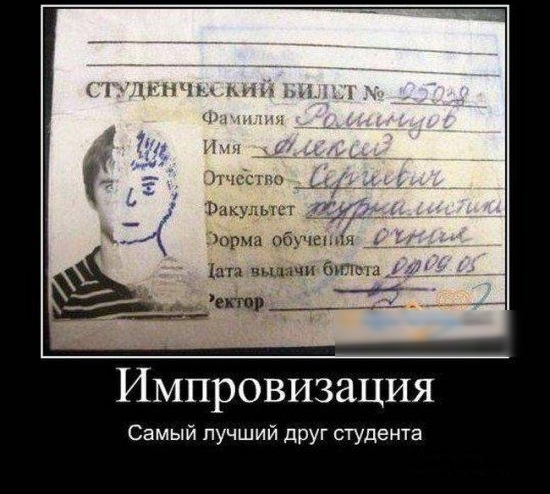 СТУДЕНЧЕСКИЙ БИЛЕТ № 25039
Фамилия Романцов
Имя Алексей
Отчество Сергеевич
Факультет журналистики
Форма обучения очная
Дата выдачи билета 01.09.05
Ректор
Импровизация
Самый лучший друг студента